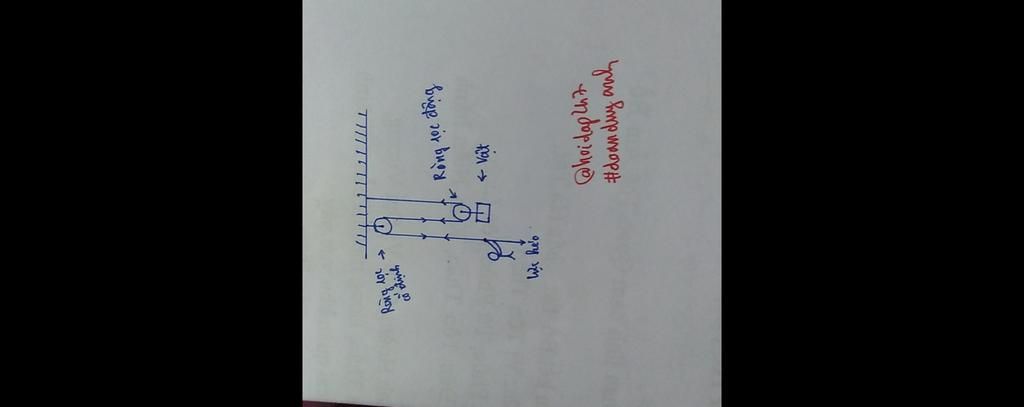 Ròng rọc
cố định
Ròng rọc động
Vật
Lực kéo
@hoidap247
#doanduyanh